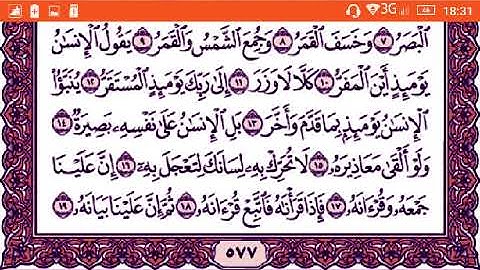 3G 46 18:31
ٱلْبَصَرُ ٧ وَخَسَفَ ٱلْقَمَرُ ٨ وَجُمِعَ ٱلشَّمْسُ وَٱلْقَمَرُ ٩ يَقُولُ ٱلْإِنسَٰنُ
يَوْمَئِذٍ أَيْنَ ٱلْمَفَرُّ ١٠ كَلَّا لَا وَزَرَ ١١ إِلَىٰ رَبِّكَ يَوْمَئِذٍ ٱلْمُسْتَقَرُّ ١٢ يُنَبَّؤُا۟
ٱلْإِنسَٰنُ يَوْمَئِذٍۭ بِمَا قَدَّمَ وَأَخَّرَ ١٣ بَلِ ٱلْإِنسَٰنُ عَلَىٰ نَفْسِهِۦ بَصِيرَةٌ ١٤
وَلَوْ أَلْقَىٰ مَعَاذِيرَهُۥ ١٥ لَا تُحَرِّكْ بِهِۦ لِسَانَكَ لِتَعْجَلَ بِهِۦٓ ١٦ إِنَّ عَلَيْنَا
جَمْعَهُۥ وَقُرْءَانَهُۥ ١٧ فَإِذَا قَرَأْنَٰهُ فَٱتَّبِعْ قُرْءَانَهُۥ ١٨ ثُمَّ إِنَّ عَلَيْنَا بَيَانَهُۥ ١٩
٥٧٧